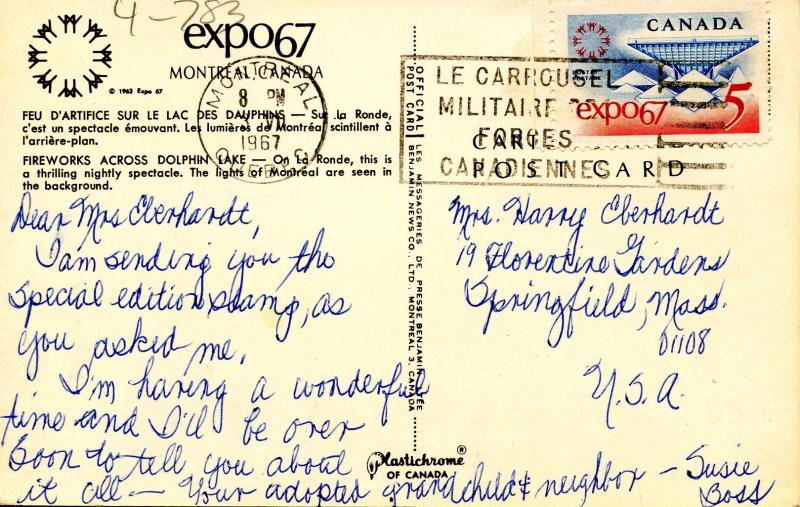 4-783
expo67
MONTRÉAL, CANADA
© 1963 Expo 67
FEU D'ARTIFICE SUR LE LAC DES DAUPHINS — Sur La Ronde,
c'est un spectacle émouvant. Les lumières de Montréal scintillent à
l'arrière-plan.
FIREWORKS ACROSS DOLPHIN LAKE — On La Ronde, this is
a thrilling nightly spectacle. The lights of Montreal are seen in
the background.
MONTREAL
8 PM
VI
1967
QUEBEC
Dear Mrs Eberhardt,
I am sending you the
special edition stamp, as
you asked me.
I'm having a wonderful
time and I'll be over
soon to tell you about
it all — Your adopted grandchild & neighbor — Susie
Boss
OFFICIAL POST CARD
LES MESSAGERIES DE PRESSE BENJAMIN LTÉE
BENJAMIN NEWS CO., LTD., MONTREAL 3, CANADA
Plastichrome®
OF CANADA
CANADA
POSTES POSTAGE
expo67
5
LE CARROUSEL
MILITAIRE DES
FORCES
CANADIENNES
CARTE
POST CARD
Mrs. Harry Eberhardt
19 Florentine Gardens
Springfield, Mass.
01108
U.S.A.